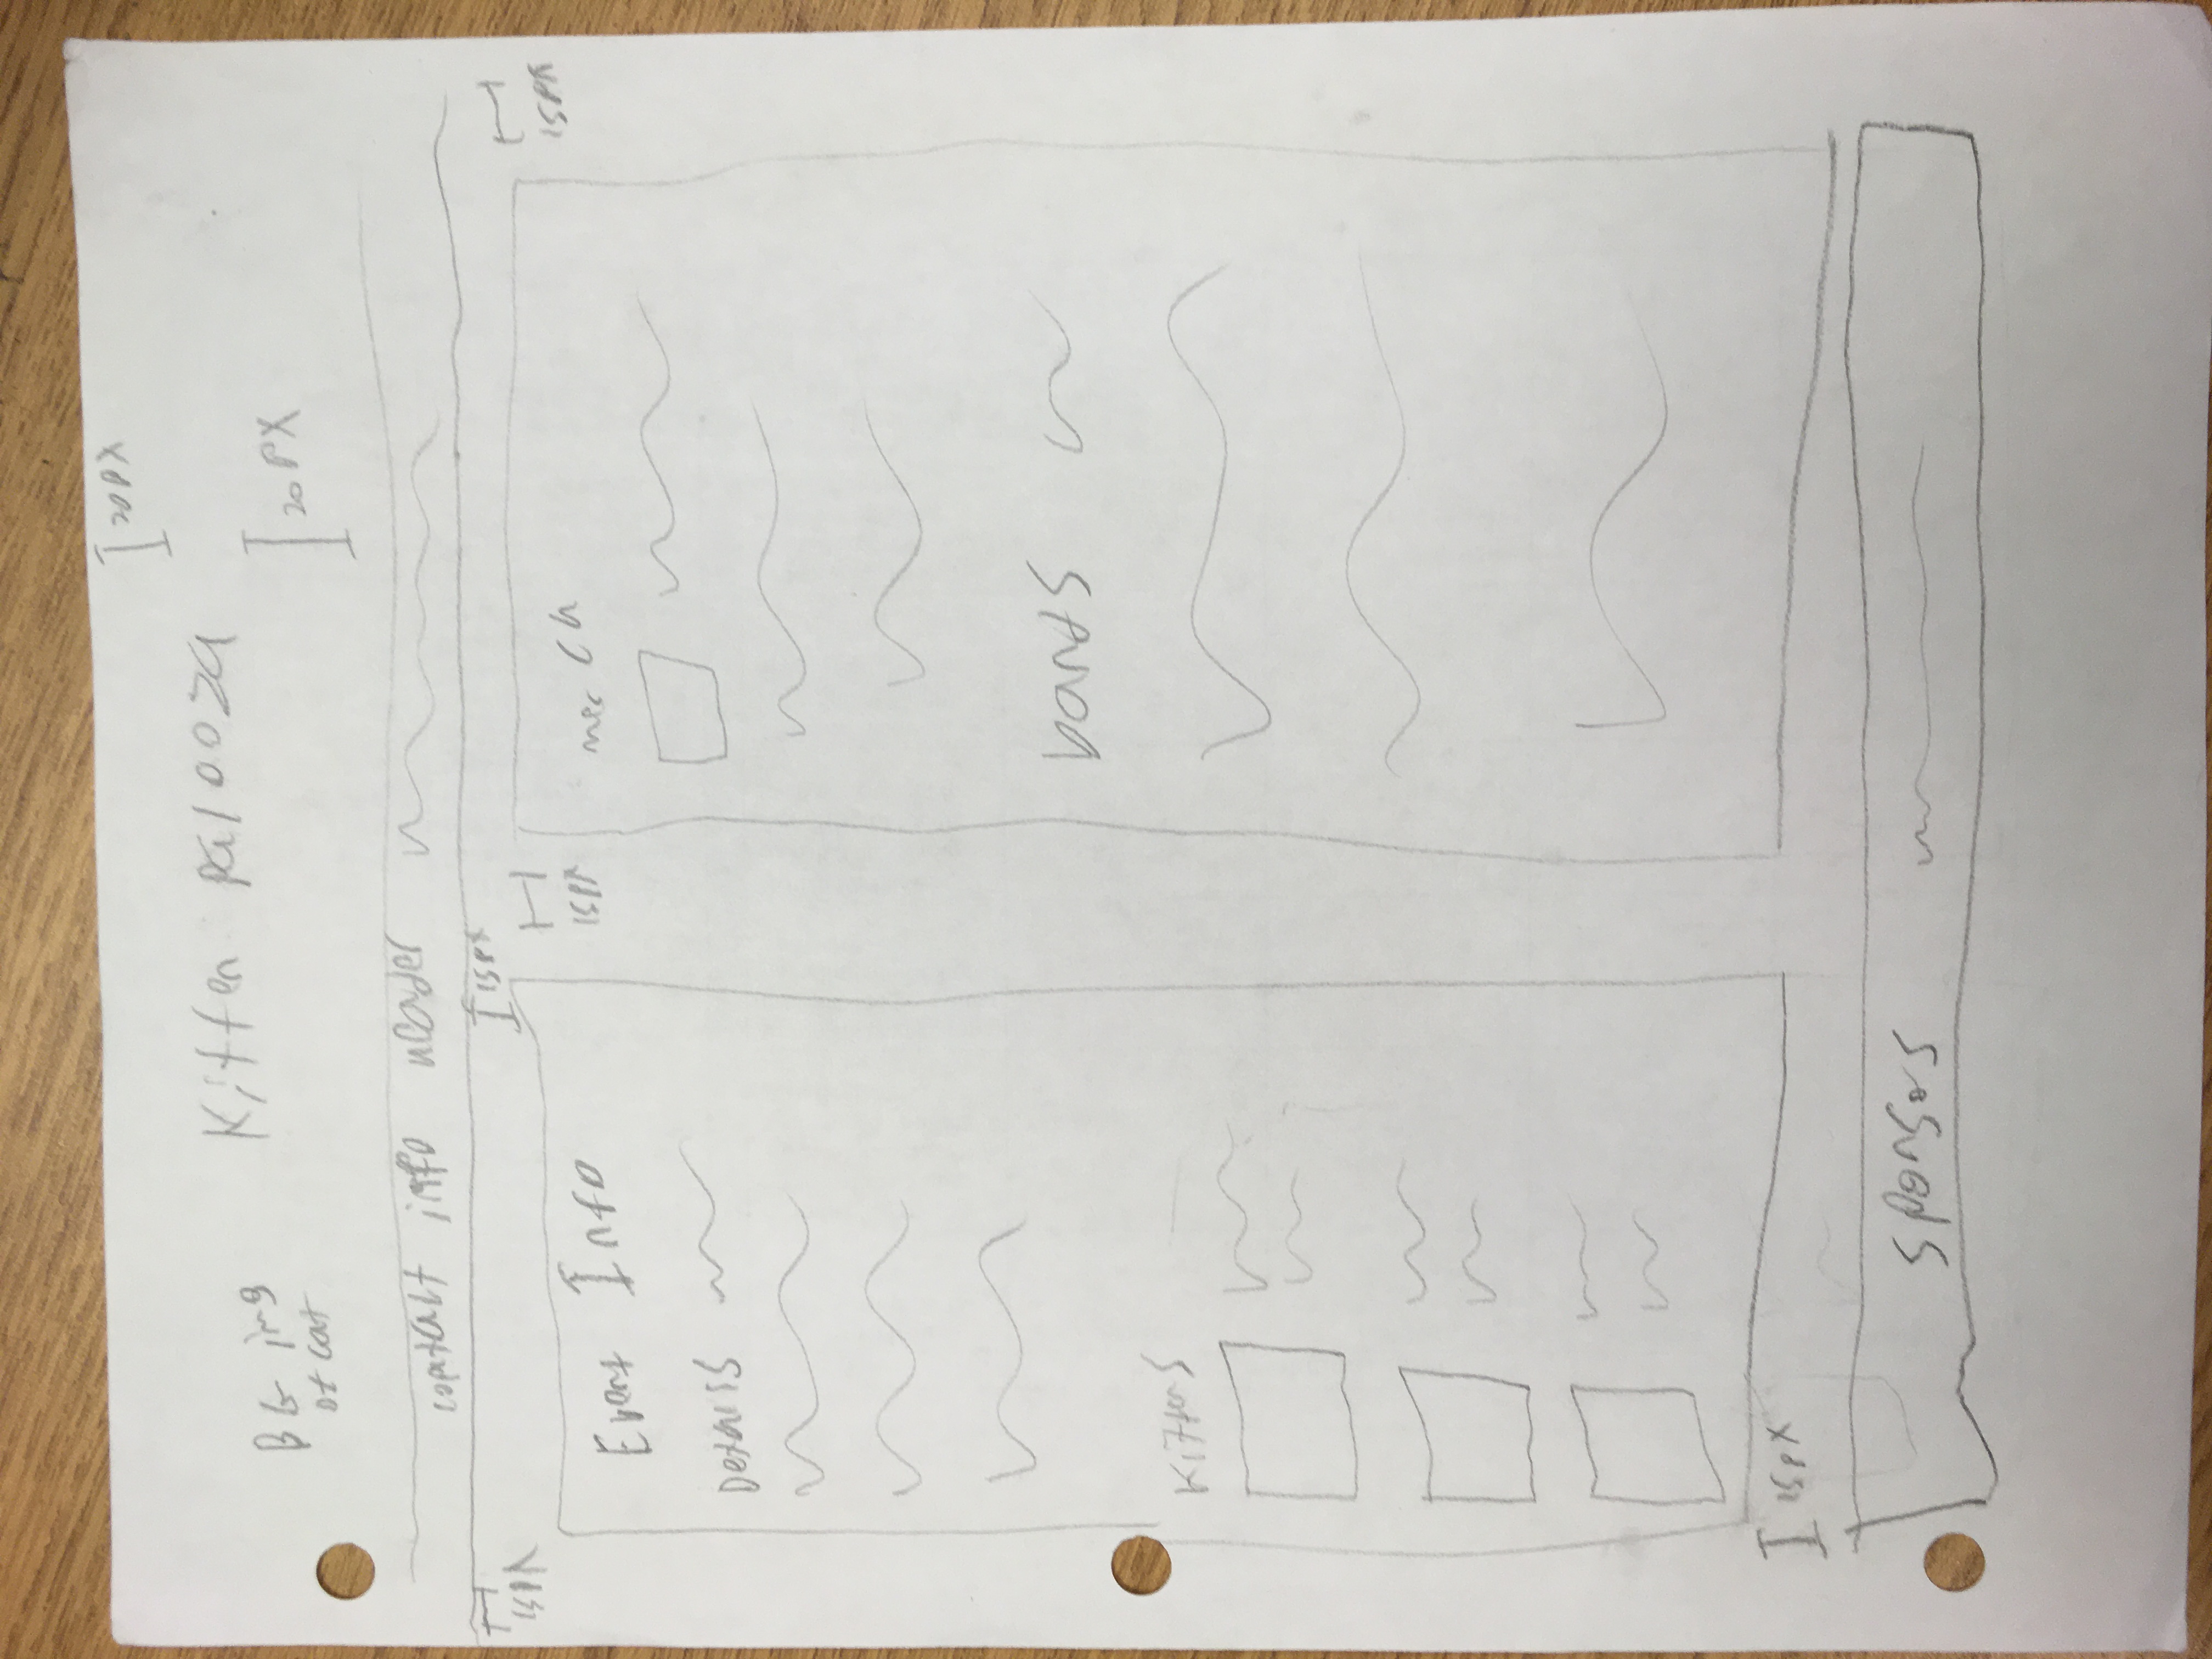 20PX
Kitten Palooza
BG img
of cat
20PX
contact info header
15PX
15PX
15PX
15PX
Event Info
merch
Details
bands
Kittens
15PX
sponsors